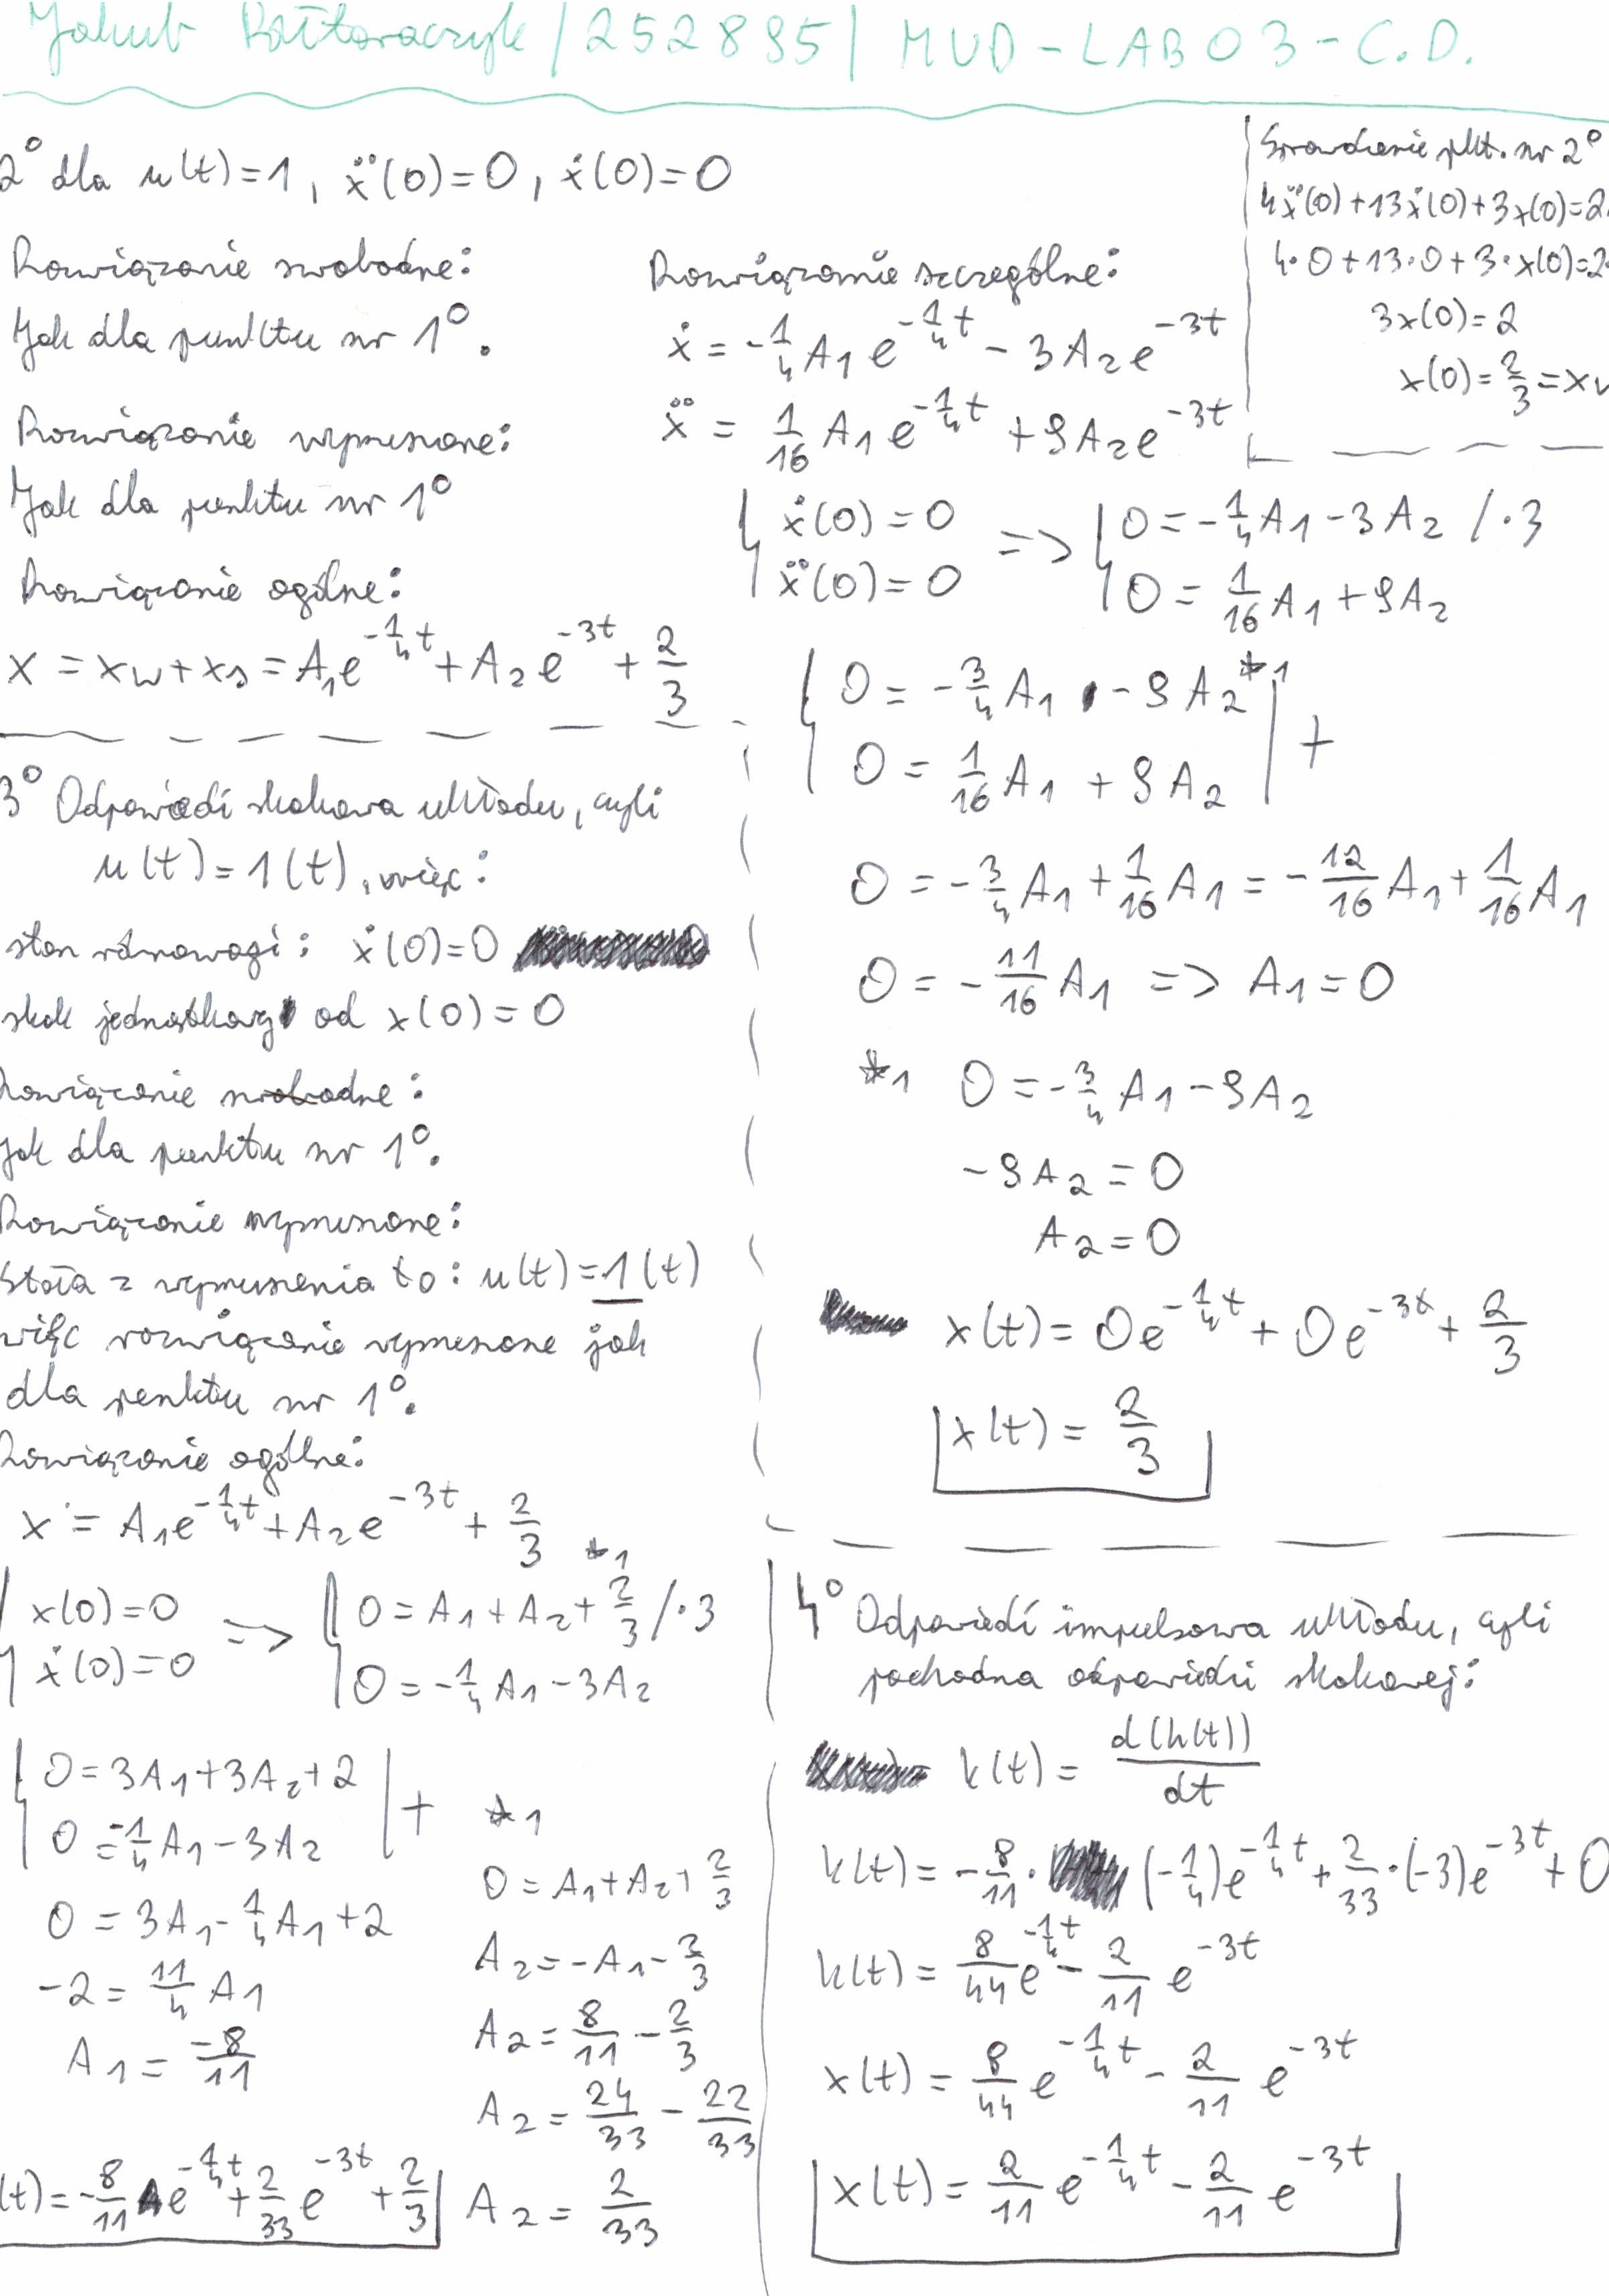 Jakub Półtoraczyk / 252895 / MUD-LAB03-C.D.
2° dla u(t)=1, ẍ(0)=0, ẋ(0)=0
Rozwiązanie swobodne:
Jak dla punktu nr 1°.
Rozwiązanie wymuszone:
Jak dla punktu nr 1°
Rozwiązanie ogólne:
x = xw+xs = A₁e^(-1/4 t) + A₂e^(-3t) + 2/3
Rozwiązanie szczególne:
ẋ = -1/4 A₁e^(-1/4 t) - 3A₂e^(-3t)
ẍ = 1/16 A₁e^(-1/4 t) + 9A₂e^(-3t)
{ ẋ(0)=0 => { 0 = -1/4 A₁ - 3A₂ /·3
ẍ(0)=0 0 = 1/16 A₁ + 9A₂
{ 0 = -3/4 A₁ - 9A₂ *1 | +
0 = 1/16 A₁ + 9A₂
0 = -3/4 A₁ + 1/16 A₁ = -12/16 A₁ + 1/16 A₁
0 = -11/16 A₁ => A₁ = 0
*1 0 = -3/4 A₁ - 9A₂
-9A₂ = 0
A₂ = 0
x(t) = 0e^(-1/4 t) + 0e^(-3t) + 2/3
x(t) = 2/3
Sprawdzenie pkt. nr 2°
4ẍ(0)+13ẋ(0)+3x(0)=2
4·0+13·0+3·x(0)=2
3x(0)=2
x(0)=2/3=xw
3° Odpowiedź skokowa układu, czyli
u(t)=1(t), więc:
stan równowagi: ẋ(0)=0
skok jednostkowy od x(0)=0
Rozwiązanie swobodne:
Jak dla punktu nr 1°.
Rozwiązanie wymuszone:
Stała z wymuszenia to: u(t)=1(t)
więc rozwiązanie wymuszone jak
dla punktu nr 1°.
Rozwiązanie ogólne:
x = A₁e^(-1/4 t) + A₂e^(-3t) + 2/3
{ x(0)=0 => { 0 = A₁ + A₂ + 2/3 /·3 *1
ẋ(0)=0 0 = -1/4 A₁ - 3A₂
{ 0 = 3A₁+3A₂+2 | +
0 = -1/4 A₁ - 3A₂
0 = 3A₁ - 1/4 A₁ + 2
-2 = 11/4 A₁
A₁ = -8/11
*1
0 = A₁+A₂+2/3
A₂ = -A₁ - 2/3
A₂ = 8/11 - 2/3
A₂ = 24/33 - 22/33
A₂ = 2/33
(t) = -8/11 e^(-1/4 t) + 2/33 e^(-3t) + 2/3
4° Odpowiedź impulsowa układu, czyli
pochodna odpowiedzi skokowej:
k(t) = d(h(t))/dt
k(t) = -8/11 · (-1/4)e^(-1/4 t) + 2/33 · (-3)e^(-3t) + 0
k(t) = 8/44 e^(-1/4 t) - 2/11 e^(-3t)
x(t) = 8/44 e^(-1/4 t) - 2/11 e^(-3t)
x(t) = 2/11 e^(-1/4 t) - 2/11 e^(-3t)